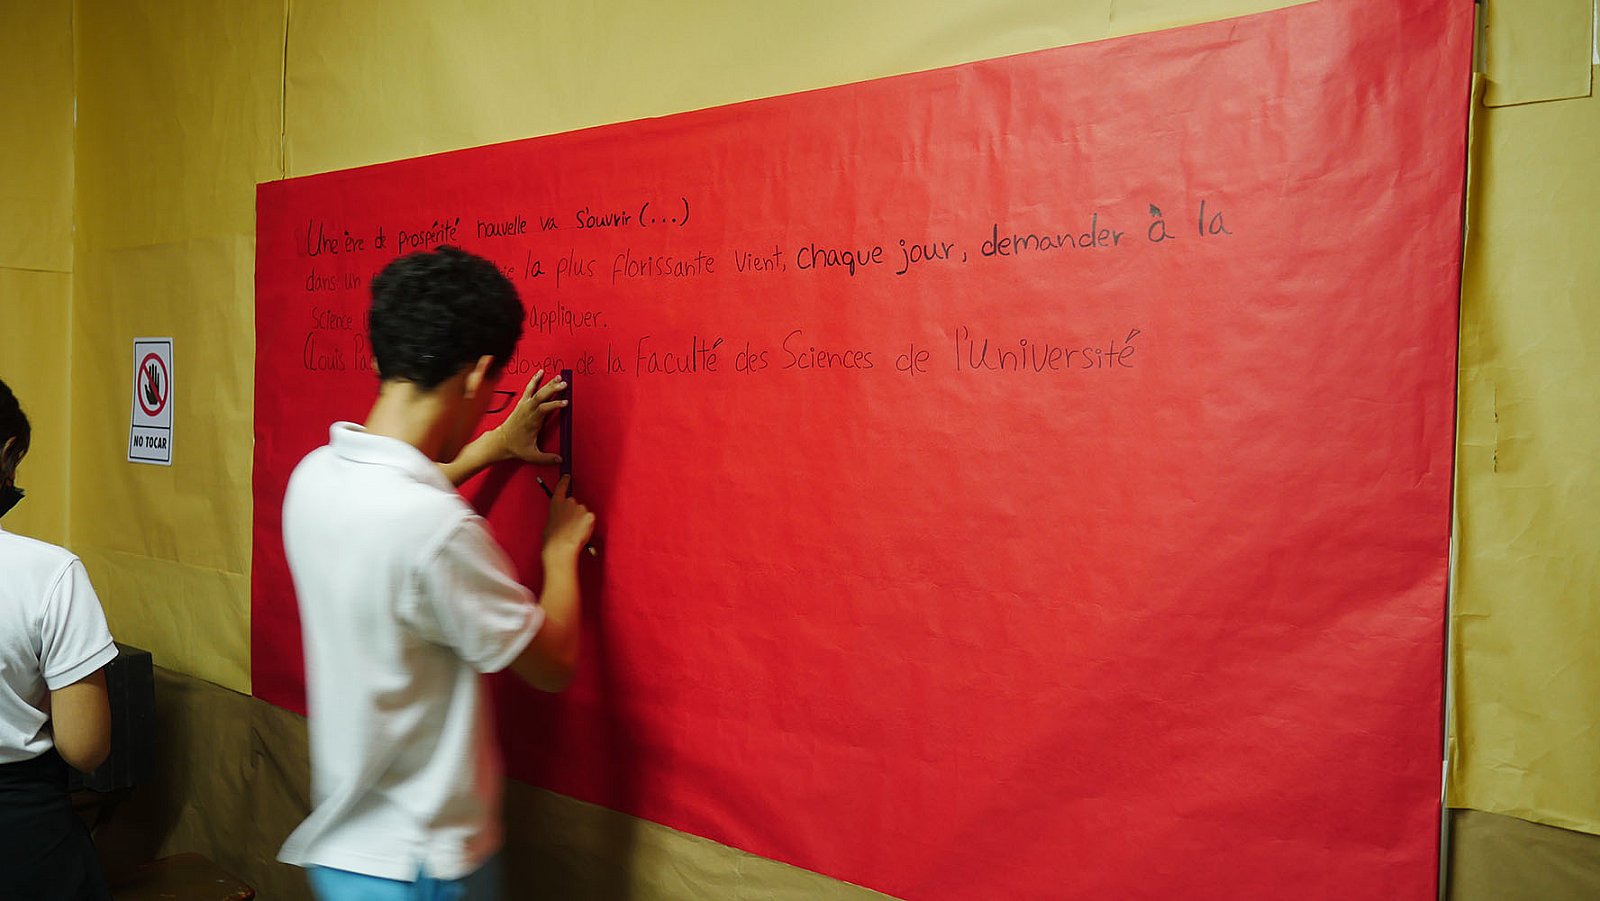 Une ère de prospérité nouvelle va s'ouvrir (...)
dans un la plus florissante vient, chaque jour, demander à la
Science appliquer.
(Louis doyen de la Faculté des Sciences de l'Université
NO TOCAR